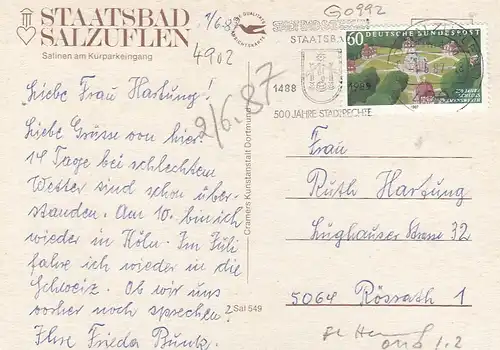 STAATSBAD
SALZUFLEN
Salinen am Kurparkeingang
1/6.87
4902
G0992
STAATSB
1488
500 JAHRE STADTRECHTE
60 DEUTSCHE BUNDESPOST
Liebe Frau Hartung!
2/6.87
Liebe Grüsse von hier.
14 Tage bei schlechtem
Wetter sind schon über-
standen. Am 10. bin ich
wieder in Köln. Im Juli
fahre ich wieder in die
Schweiz. Ob wir uns
vorher noch sprechen?
Ihre Frieda Bunk.
Cramers Kunstanstalt Dortmund
2 Sal 549
Frau
Ruth Hartung
Lughauser Strasse 32
5064 Rösrath 1